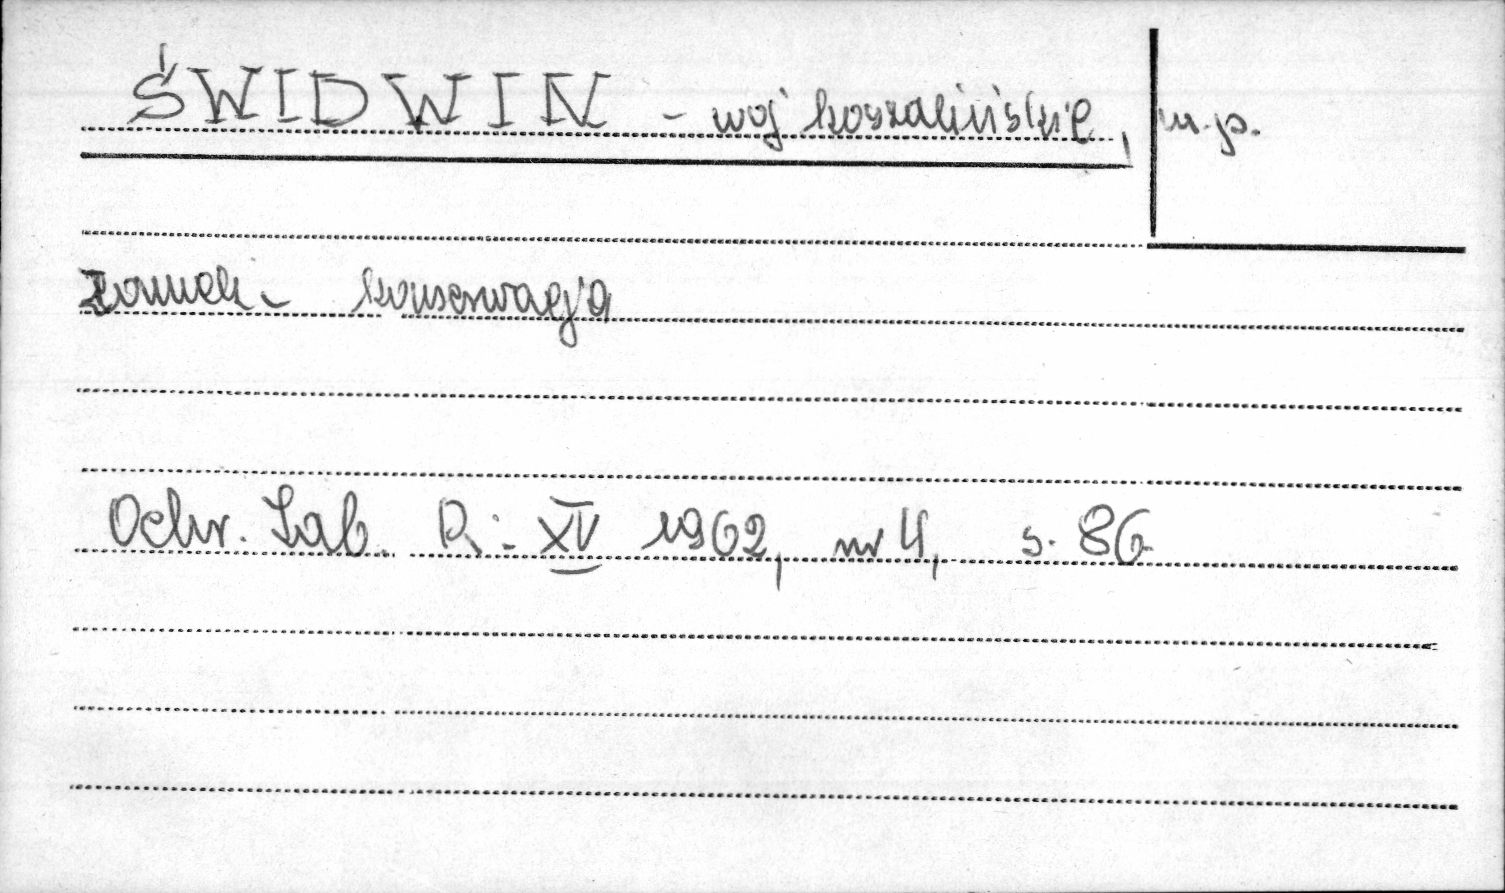 ŚWIDWIN - woj koszalińskie, m.p.
Zamek - konserwacja
Ochr. Zab. R: XV 1962, nr 4, s. 86